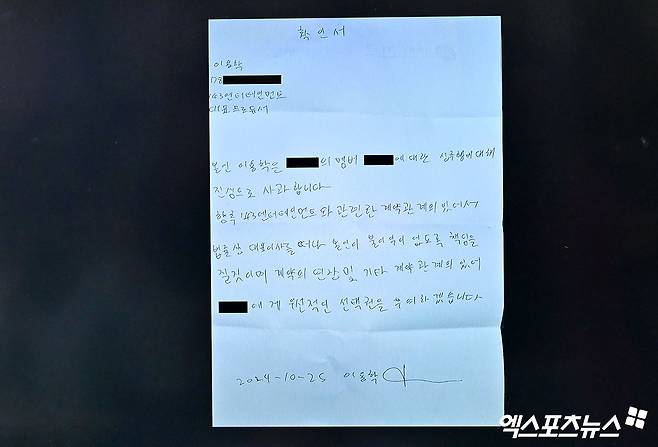 확인서
이용학
178
143엔터테인먼트
대표프로듀서
본인 이용학은 의 멤버 에 대한 성추행에 대해
진심으로 사과합니다
향후 143엔터테인먼트와 관련한 계약관계의 있어서
법률상 대표이사를 떠나 본인이 불이익이 없도록 책임을
질것이며 계약의 연장 및 기타 계약관계의 있어
에게 우선적인 선택권을 부여하겠습니다
2024-10-25 이용학
엑스포츠뉴스